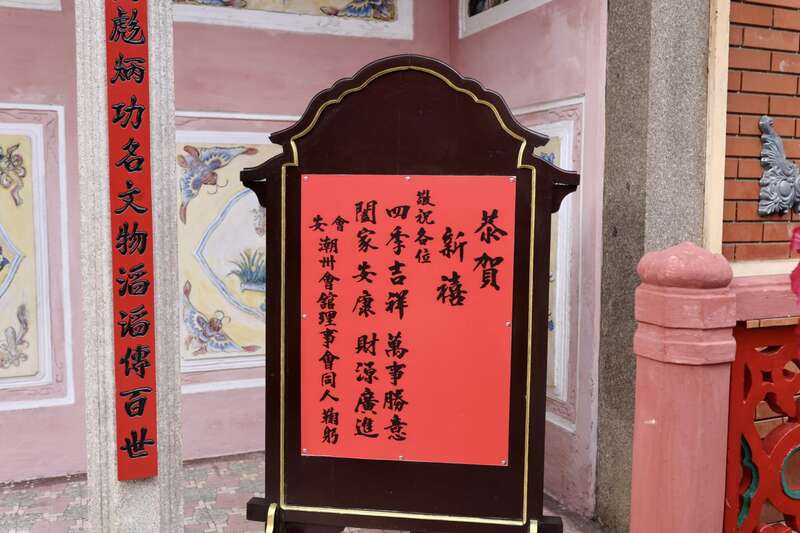 恭賀
新禧
敬祝各位
四季吉祥 萬事勝意
闔家安康 財源廣進
會安潮州會館理事會同人 鞠躬
彪炳功名文物滔滔傳百世